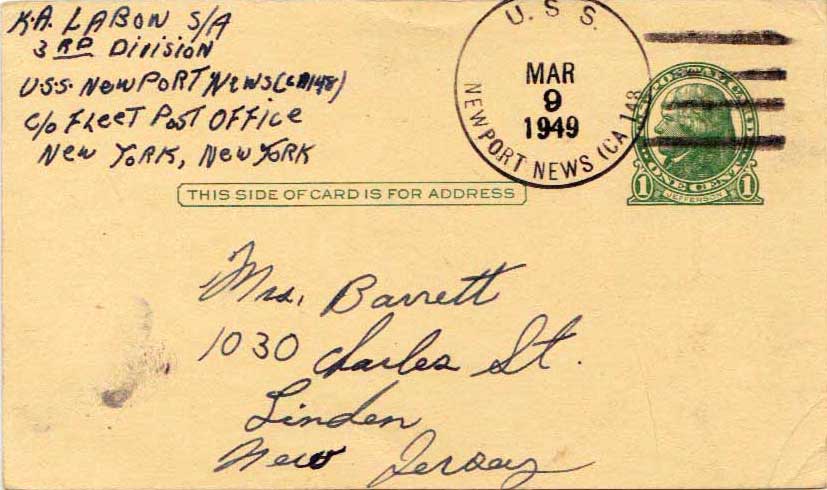 K.A. LABOW S/A
3RD Division
U.S.S. NEWPORT NEWS (CA148)
c/o FLEET POST OFFICE
NEW YORK, NEW YORK
U. S. S.
MAR
9
1949
NEWPORT NEWS (CA 148
ONE CENT
1 JEFFERSON 1
THIS SIDE OF CARD IS FOR ADDRESS
Mrs. Barrett
1030 Charles St.
Linden
New Jersey